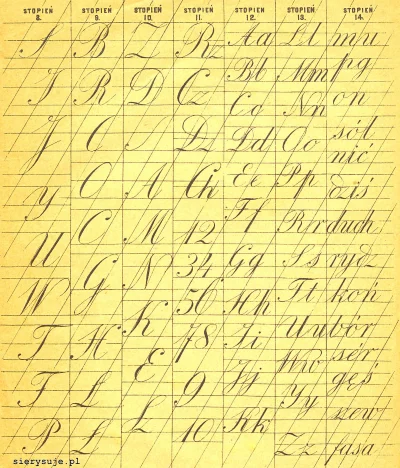 STOPIEŃ 8.
S
I
J
Y
U
W
T
F
P
STOPIEŃ 9.
B
R
C
O
C
G
H
L
Ł
STOPIEŃ 10.
Z
D
A
M
N
K
E
L
STOPIEŃ 11.
Rz
Cz
Dz
Ch
12
34
56
78
9
10
STOPIEŃ 12.
Aa
Bb
Cc
Dd
Ee
Ff
Gg
Hh
Ii
Jj
Kk
STOPIEŃ 13.
Ll
Mm
Nn
Oo
Pp
Rr
Ss
Tt
Uu
Ww
Yy
Zz
STOPIEŃ 14.
mu
pg
on
sól
nić
dziś
duch
rydz
koń
bór
sér
gęś
szew
fasa
sierysuje.pl